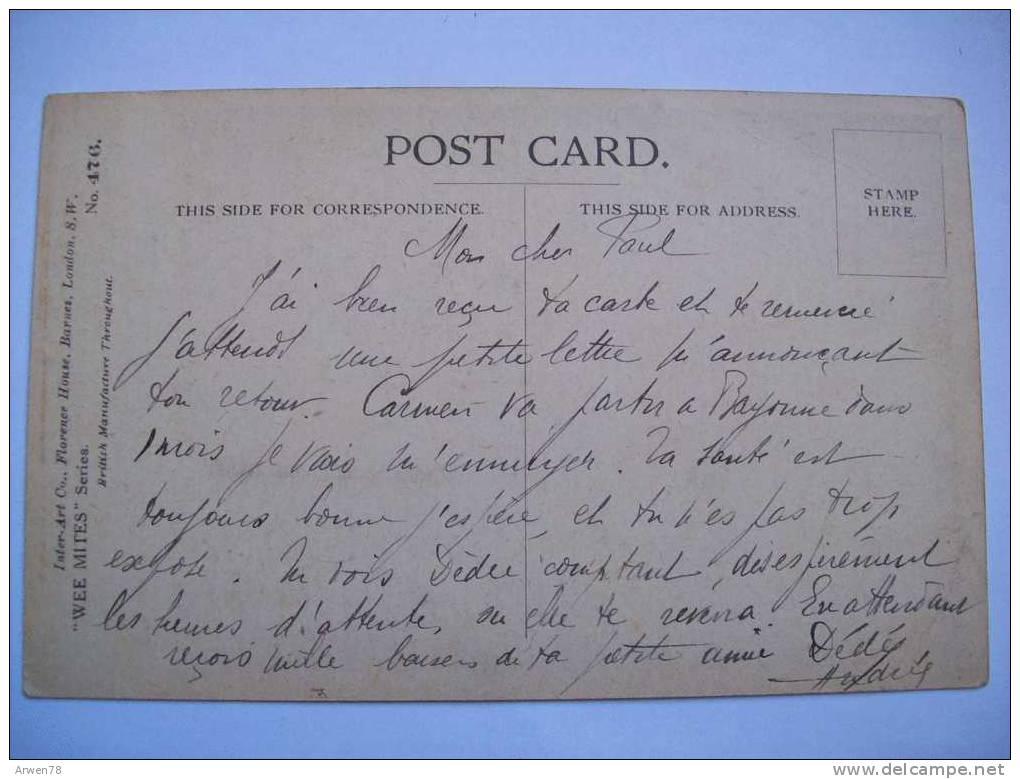 POST CARD.
THIS SIDE FOR CORRESPONDENCE.
THIS SIDE FOR ADDRESS.
STAMP
HERE.
Inter-Art Co., Florence House, Barnes, London, S.W.
"WEE MITES" Series. No. 476.
British Manufacture Throughout.
Mon cher Paul
J'ai bien reçu ta carte et te remercie
J'attends une petite lettre m'annonçant
ton retour. Carmen va partir a Bayonne dans
1 mois je vais m'ennuyer. Ta santé est
toujours bonne j'espère, et tu n'es pas trop
exposé. Tu vois Dédée comptant, désespérément
les heures d'attente, ou elle te reverra. En attendant
reçois mille baisers de ta petite amie Dédée
Andrée
Arwen78
delcampe.net